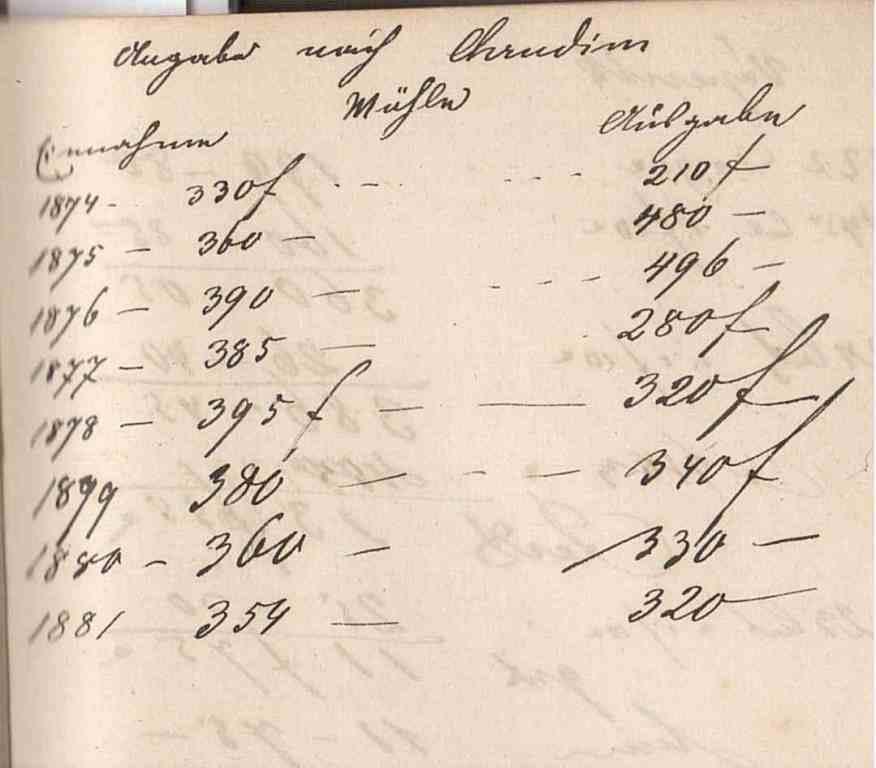 Angabe nach Chrudim
Mühle
Einnahme Ausgabe
1874 - 330 f . - - - - - 210 f
1875 - 360 - 480 -
1876 - 390 - - - - 496 -
1877 - 385 - 280 f
1878 - 395 f - — 320 f
1899 380 - - - 340 f
1880 - 360 - 330 -
1881 354 - 320 -